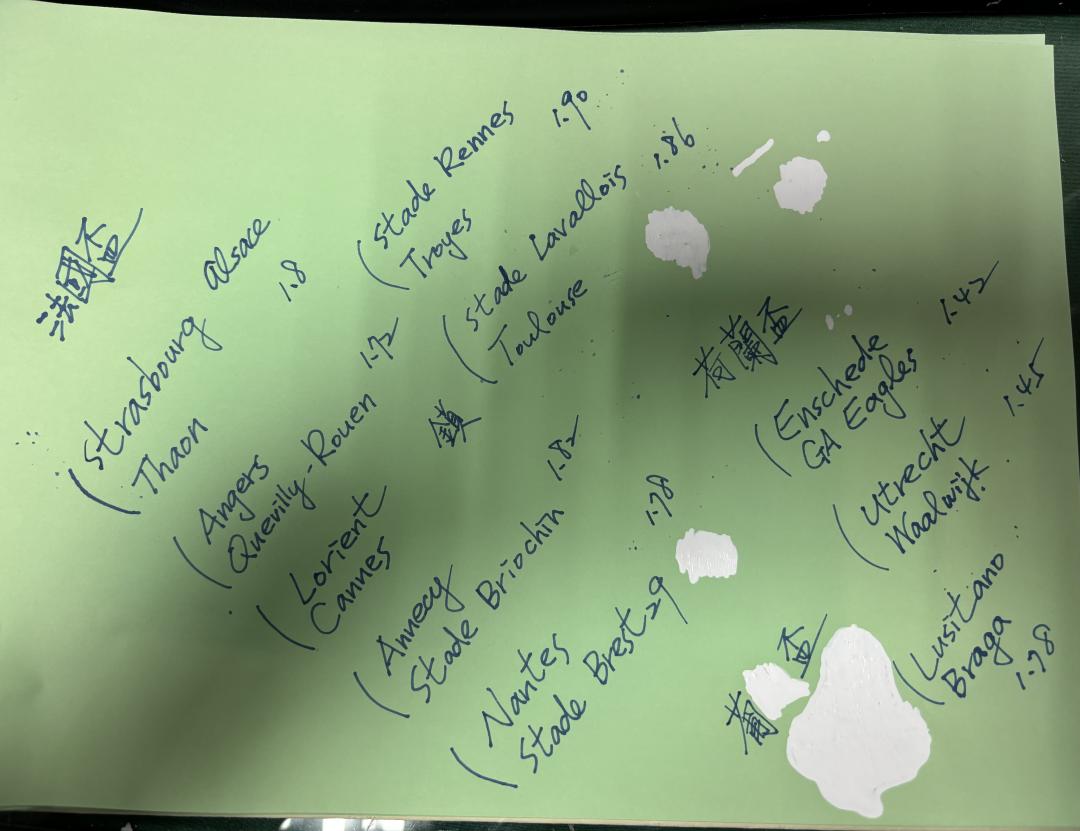 法國盃
Strasbourg Alsace
Thaon 1.8
Angers
Quevilly-Rouen 1.72
Lorient
Cannes 鎖
Annecy
Stade Briochin 1.82
Nantes
Stade Brest 29 1.78
Stade Rennes 1.90
Troyes
Stade Lavallois 1.86
Toulouse
荷蘭盃
Enschede 1.42
GA Eagles
Utrecht 1.45
Waalwijk
葡盃
Lusitano
Braga 1.78